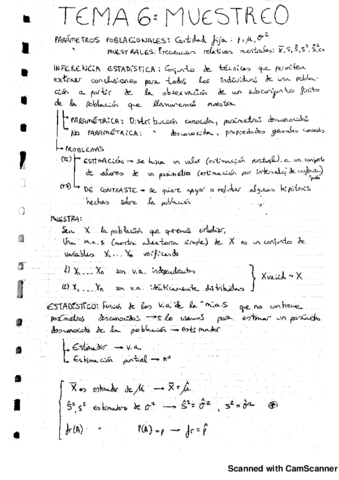 TEMA 6: MUESTREO
PARÁMETROS POBLACIONALES: Cantidad fija: p, μ, σ²
MUESTRALES: Frecuencias relativas muestrales: x̄, ŝ, ŝ²
INFERENCIA ESTADÍSTICA: Conjunto de técnicas que permiten
extraer conclusiones para todos los individuos de una pobla-
ción a partir de la observación de un subconjunto finito
de la población que llamaremos muestra
PARAMÉTRICA: Distribución conocida, parámetros desconocidos
NO PARAMÉTRICA: " desconocida, propiedades generales
PROBLEMAS
ESTIMACIÓN → se busca un valor (estimación puntual) o un conjunto
de valores de un parámetro (estimación por intervalos de confianza)
DE CONTRASTE → se quiere negar o refutar alguna hipótesis
hechas sobre la población
MUESTRA:
Sea X la población que queremos estudiar,
Una m.a.s (muestra aleatoria simple) de X es un conjunto de
variables X₁ ... Xₙ verificando
1) X₁ ... Xₙ son v.a. independientes
2) X₁ ... Xₙ son v.a. idénticamente distribuidas
ESTADÍSTICO: Función de las v.a de la m.a.s que no contiene
parámetros desconocidos → Si lo usamos para estimar un parámetro
desconocido de la población → estimador
Estimador → v.a.
Estimación puntual → nº
X̄ es estimador de μ → X̄ = μ̂
Ŝ², S² estimadores de σ² → Ŝ² = σ̂², S² = σ̂²
fr(A) " P(A) = p → fr = p̂
Scanned with CamScanner